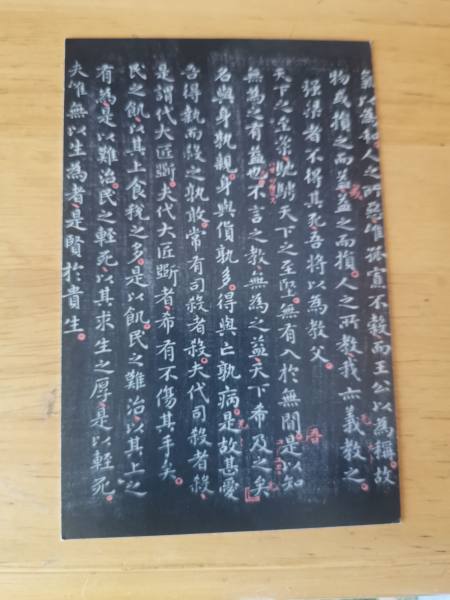 氣以為和人之所惡惟孤寡不穀而王公以為稱故
物或損之而益益之而損人之所教我亦義教之
強梁者不得其死吾將以為教父
天下之至柔馳騁天下之至堅無有入於無間是以知
無為之有益也不言之教無為之益天下希及之矣
名與身孰親身與貨孰多得與亡孰病是故甚愛
吾得執而殺之孰敢常有司殺者殺夫代司殺者殺
是謂代大匠斲夫代大匠斲者希有不傷其手矣
民之飢以其上食稅之多是以飢民之難治以其上之
有為是以難治民之輕死以其求生之厚是以輕死
夫唯無以生為者是賢於貴生